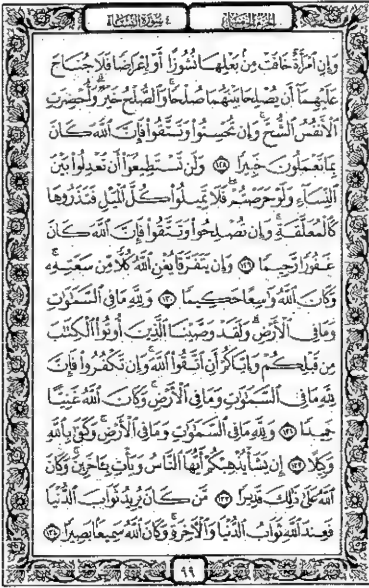 الجزء الخامس ٤ سورة النساء
وَإِنِ ٱمۡرَأَةٌ خَافَتۡ مِنۢ بَعۡلِهَا نُشُوزًا أَوۡ إِعۡرَاضٗا فَلَا جُنَاحَ
عَلَيۡهِمَآ أَن يُصۡلِحَا بَيۡنَهُمَا صُلۡحٗاۚ وَٱلصُّلۡحُ خَيۡرٞۗ وَأُحۡضِرَتِ
ٱلۡأَنفُسُ ٱلشُّحَّۚ وَإِن تُحۡسِنُواْ وَتَتَّقُواْ فَإِنَّ ٱللَّهَ كَانَ
بِمَا تَعۡمَلُونَ خَبِيرٗا ١٢٨ وَلَن تَسۡتَطِيعُوٓاْ أَن تَعۡدِلُواْ بَيۡنَ
ٱلنِّسَآءِ وَلَوۡ حَرَصۡتُمۡۖ فَلَا تَمِيلُواْ كُلَّ ٱلۡمَيۡلِ فَتَذَرُوهَا
كَٱلۡمُعَلَّقَةِۚ وَإِن تُصۡلِحُواْ وَتَتَّقُواْ فَإِنَّ ٱللَّهَ كَانَ
غَفُورٗا رَّحِيمٗا ١٢٩ وَإِن يَتَفَرَّقَا يُغۡنِ ٱللَّهُ كُلّٗا مِّن سَعَتِهِۦۚ
وَكَانَ ٱللَّهُ وَٰسِعًا حَكِيمٗا ١٣٠ وَلِلَّهِ مَا فِي ٱلسَّمَٰوَٰتِ
وَمَا فِي ٱلۡأَرۡضِۗ وَلَقَدۡ وَصَّيۡنَا ٱلَّذِينَ أُوتُواْ ٱلۡكِتَٰبَ
مِن قَبۡلِكُمۡ وَإِيَّاكُمۡ أَنِ ٱتَّقُواْ ٱللَّهَۚ وَإِن تَكۡفُرُواْ فَإِنَّ
لِلَّهِ مَا فِي ٱلسَّمَٰوَٰتِ وَمَا فِي ٱلۡأَرۡضِۚ وَكَانَ ٱللَّهُ غَنِيًّا
حَمِيدٗا ١٣١ وَلِلَّهِ مَا فِي ٱلسَّمَٰوَٰتِ وَمَا فِي ٱلۡأَرۡضِۚ وَكَفَىٰ بِٱللَّهِ
وَكِيلًا ١٣٢ إِن يَشَأۡ يُذۡهِبۡكُمۡ أَيُّهَا ٱلنَّاسُ وَيَأۡتِ بِـَٔاخَرِينَۚ وَكَانَ
ٱللَّهُ عَلَىٰ ذَٰلِكَ قَدِيرٗا ١٣٣ مَّن كَانَ يُرِيدُ ثَوَابَ ٱلدُّنۡيَا
فَعِندَ ٱللَّهِ ثَوَابُ ٱلدُّنۡيَا وَٱلۡأٓخِرَةِۚ وَكَانَ ٱللَّهُ سَمِيعَۢا بَصِيرٗا ١٣٤
٩٩